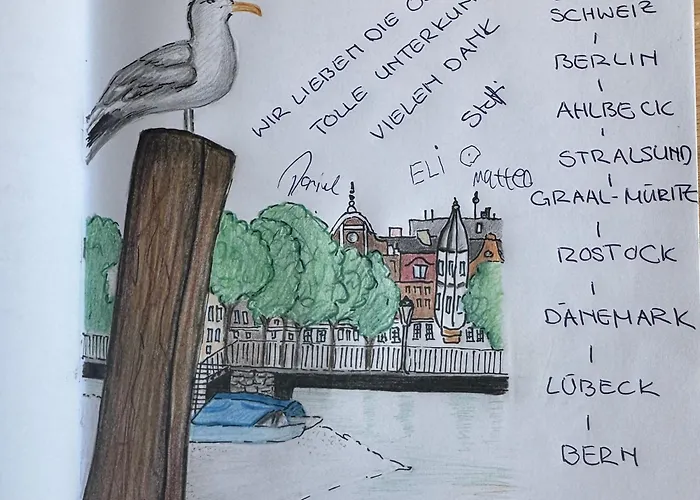 WIR LIEBEN DIE
TOLLE UNTERKUN
VIELEN DANK
Steffi
Daniel
ELI
matteo
SCHWEIZ
BERLIN
AHLBECK
STRALSUND
GRAAL-MÜRITZ
ROSTOCK
DÄNEMARK
LÜBECK
BERN